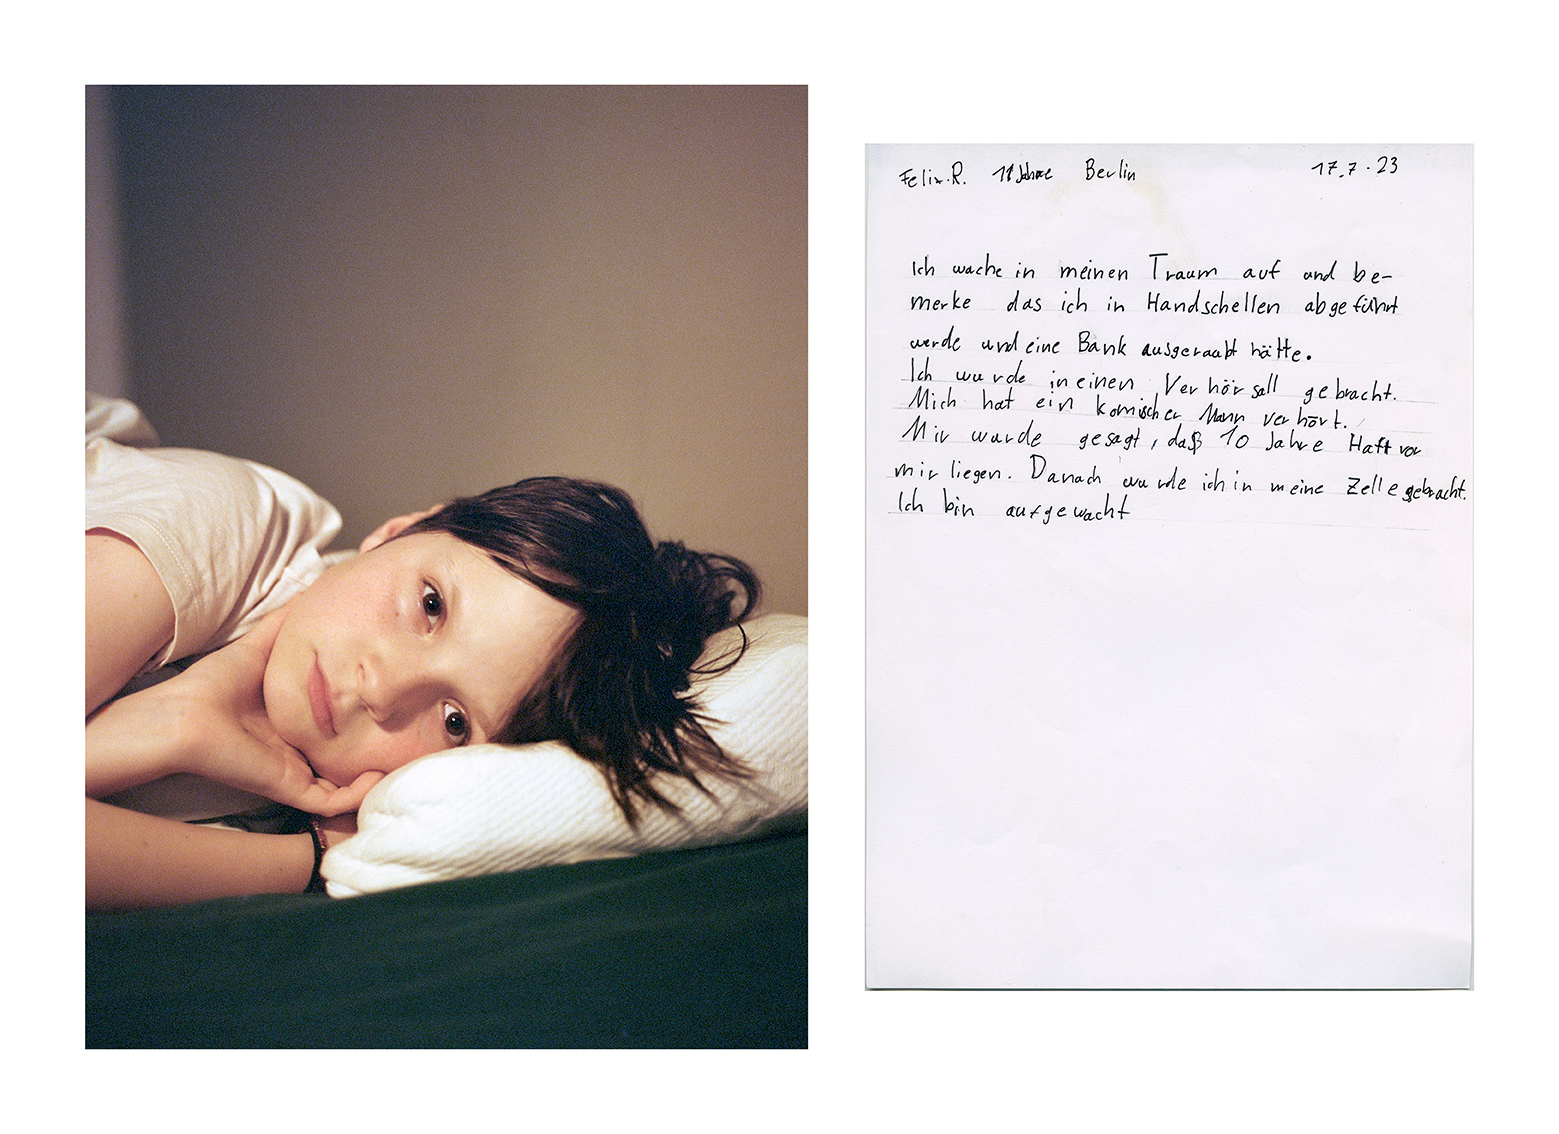 Felix.R. 11 Jahre Berlin 17.7.23
Ich wache in meinen Traum auf und be-
merke das ich in Handschellen abgeführt
werde und eine Bank ausgeraubt hätte.
Ich wurde in einen Verhörsall gebracht.
Mich hat ein komischer Mann verhört.
Mir wurde gesagt, daß 10 Jahre Haft vor
mir liegen. Danach wurde ich in meine Zelle gebracht.
Ich bin aufgewacht